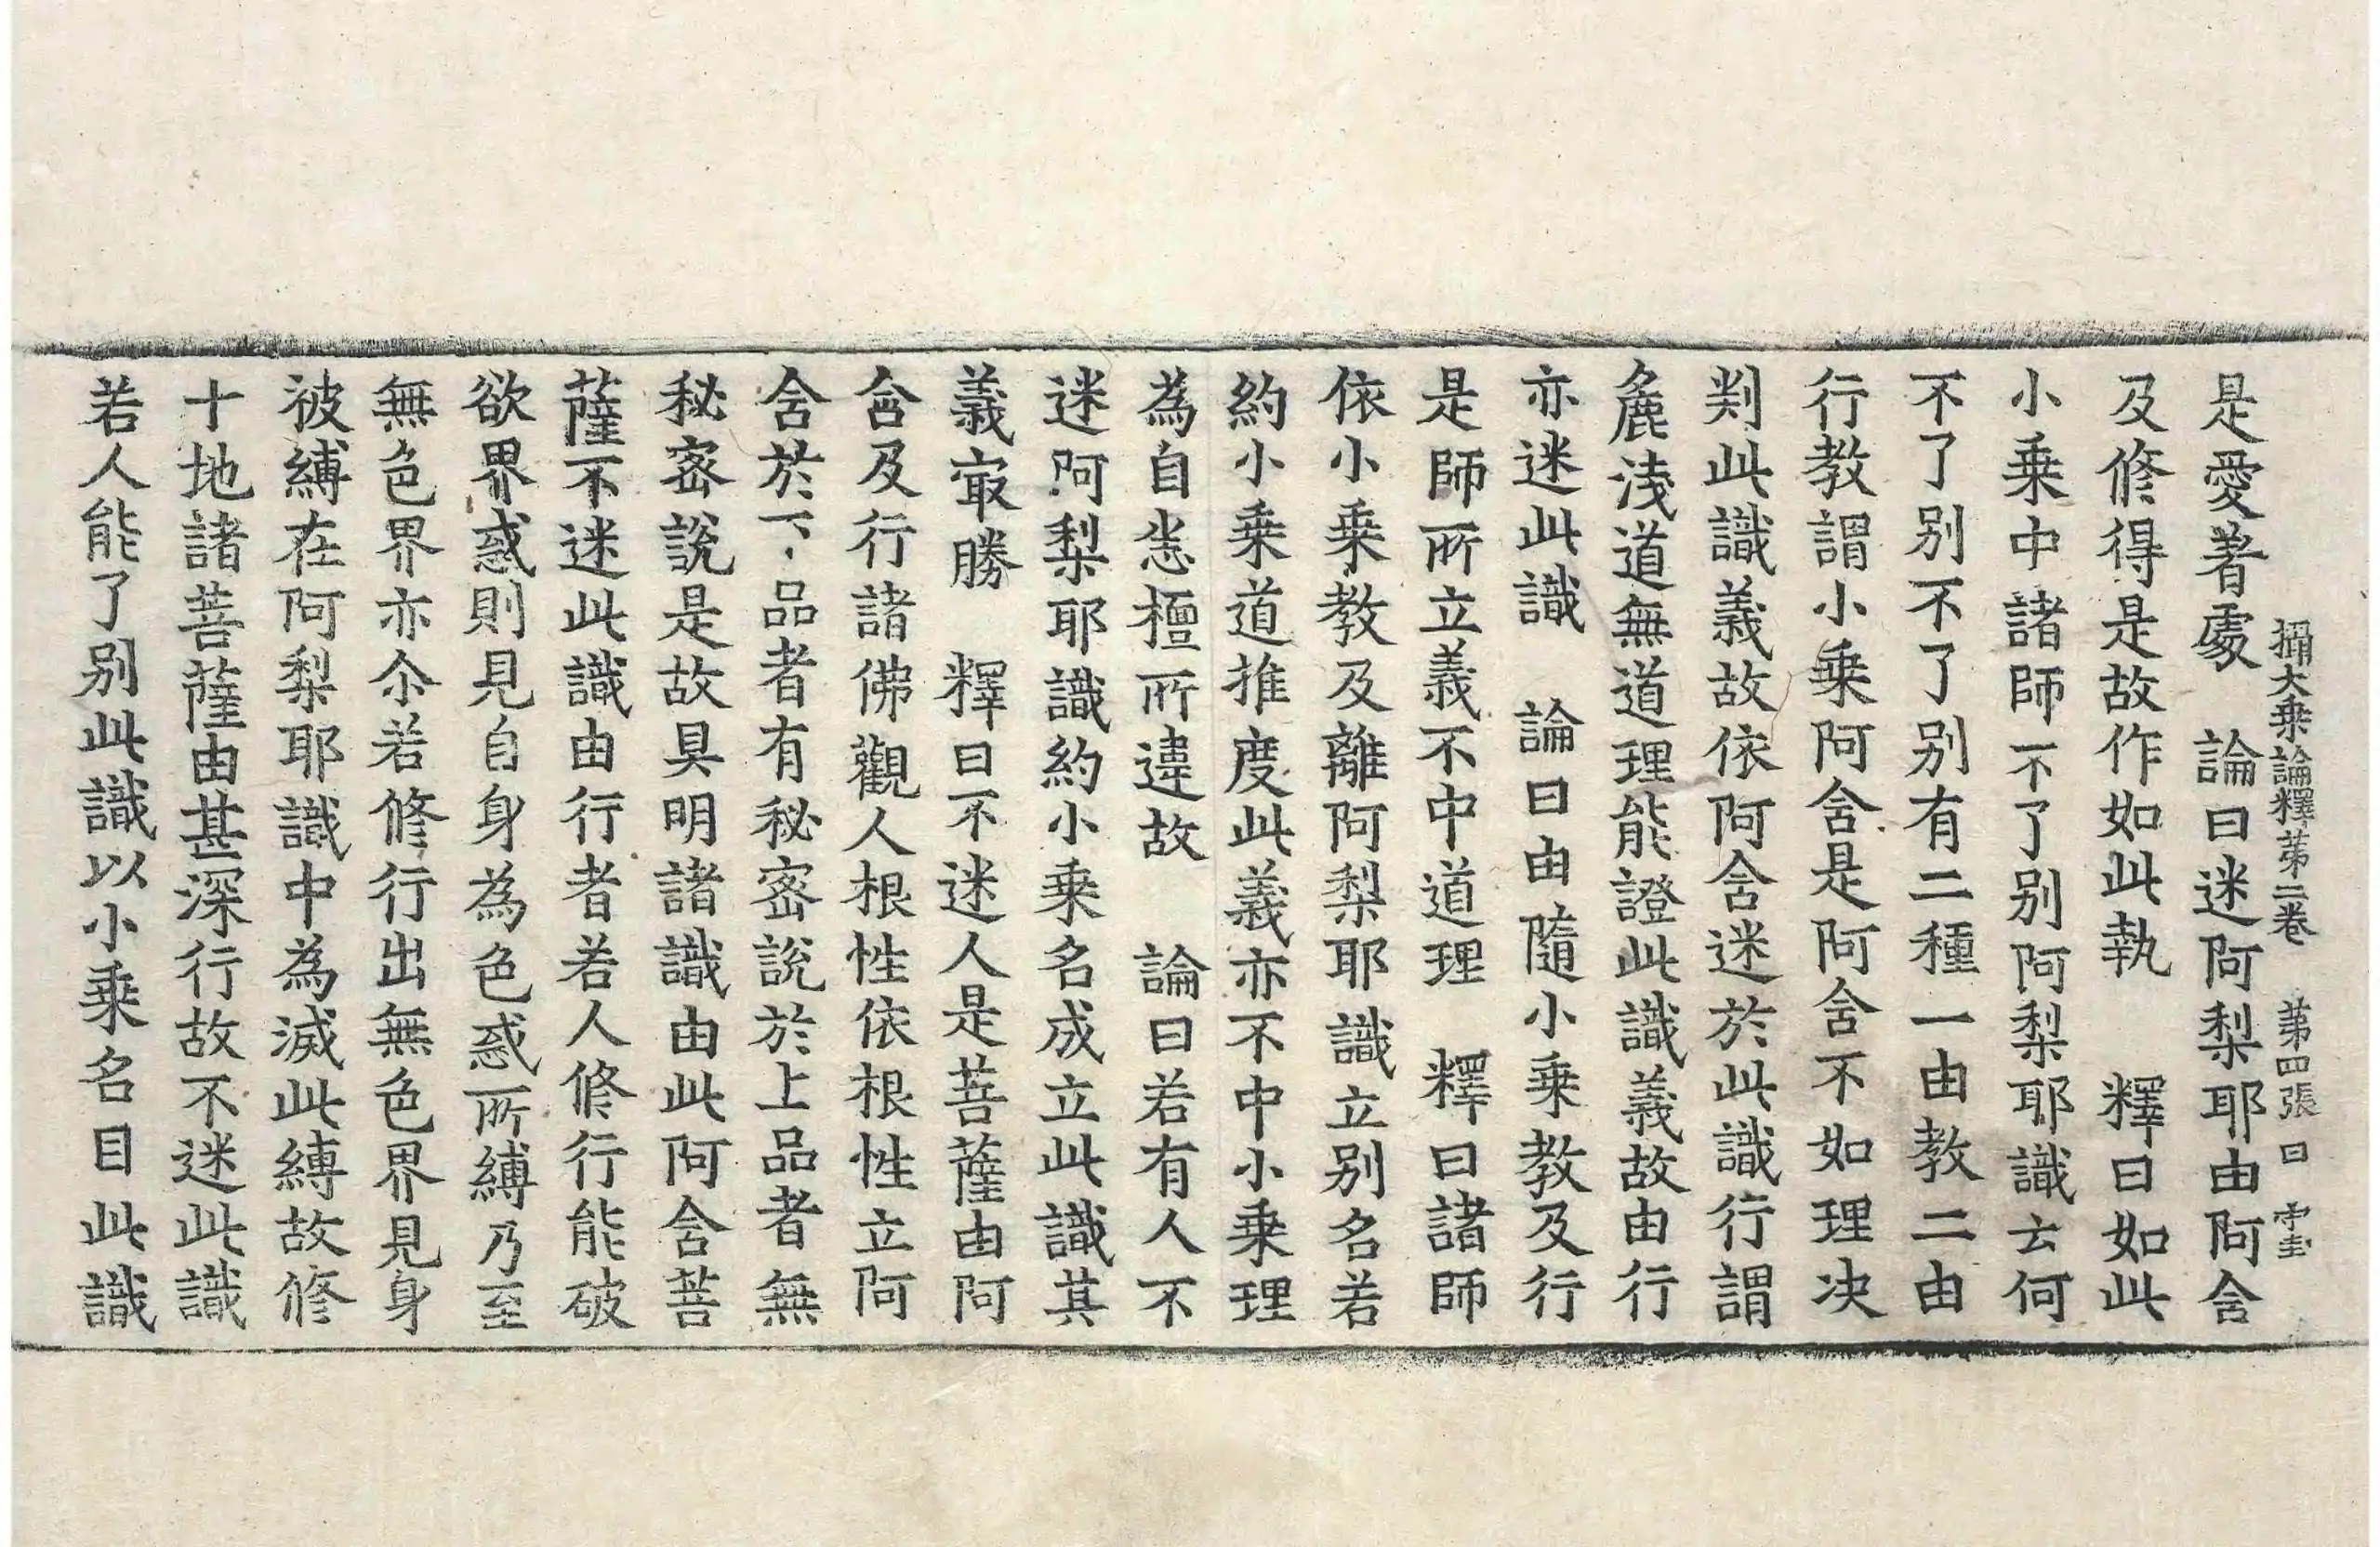 攝大乗論釋苐二卷　苐四張　曰　字圭
是愛著處　論曰迷阿梨耶由阿含
及修得是故作如此執　釋曰如此
小乗中諸師不了别阿梨耶識云何
不了别不了别有二種一由教二由
行教謂小乗阿含是阿含不如理决
判此識義故依阿含迷於此識行謂
麁淺道無道理能證此識義故由行
亦迷此識　論曰由隨小乗教及行
是師所立義不中道理　釋曰諸師
依小乗教及離阿梨耶識立别名若
約小乗道推度此義亦不中小乗理
為自悉檀所違故　論曰若有人不
迷阿梨耶識約小乗名成立此識其
義㝡勝　釋曰不迷人是菩薩由阿
含及行諸佛觀人根性依根性立阿
含於下品者有秘密說於上品者無
秘密說是故具明諸識由此阿含菩
薩不迷此識由行者若人修行能破
欲界惑則見自身為色惑所縛乃至
無色界亦尒若修行出無色界見身
被縛在阿梨耶識中為滅此縛故修
十地諸菩薩由甚深行故不迷此識
若人能了别此識以小乗名目此識